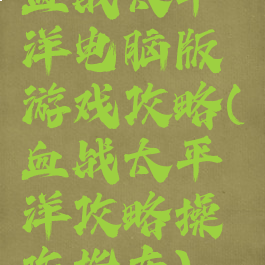 血战太平
洋电脑版
游戏攻略(
血战太平
洋攻略操